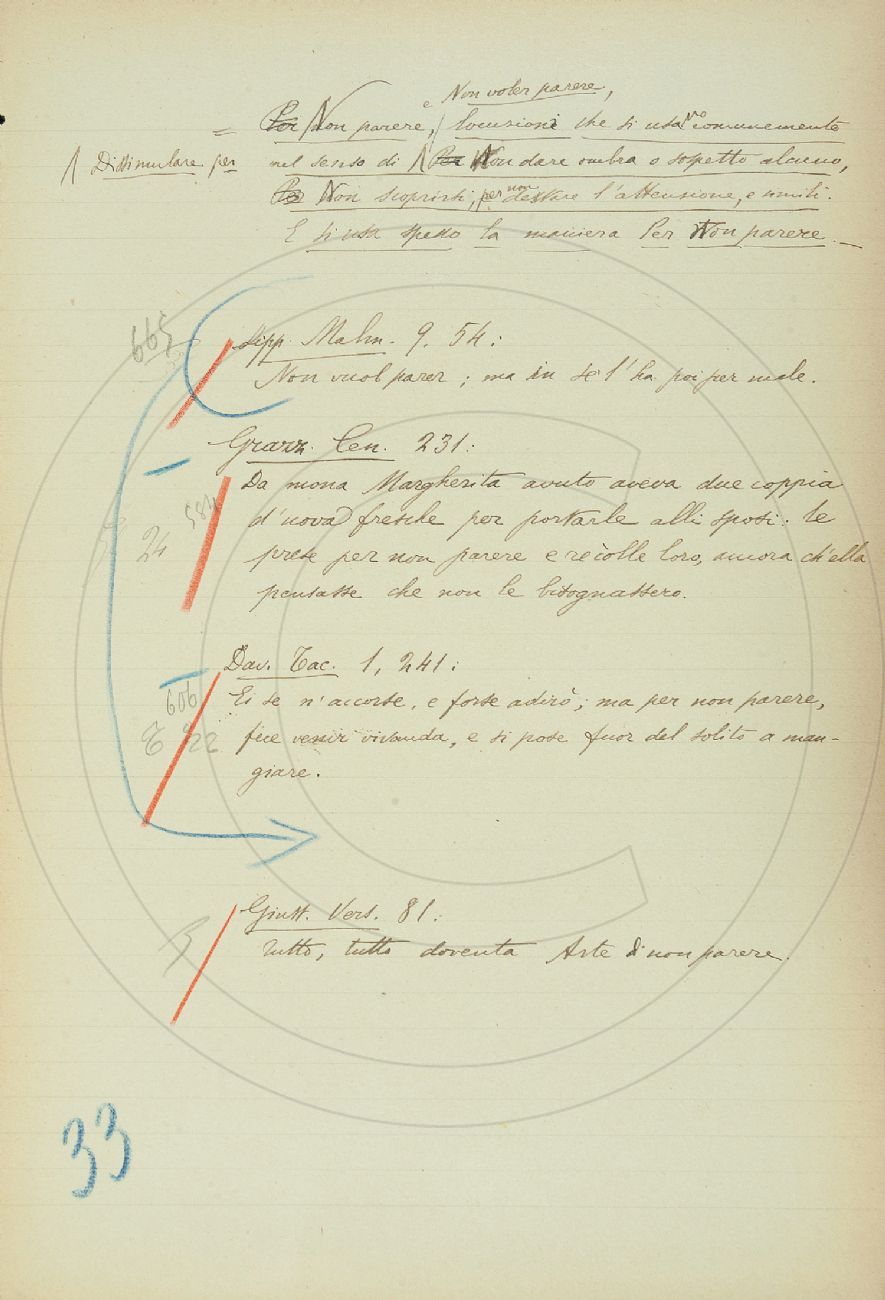 e Non voler parere,
= Per Non parere, locuzioni che si usano comunemente
Dissimulare per nel senso di Per Non dare ombra o sospetto alcuno,
Per Non scoprirsi, per non destare l'attenzione, e simili.
E si usa spesso la maniera Per Non parere. —
665
Lipp. Malm. 9. 54:
Non vuol parer; ma in sè l'ha poi per male.
Grazz. Cen. 231:
Da mona Margherita avuto aveva due coppia
584 d'uova fresche per portarle alli sposi: le
24 prese per non parere e recolle loro, ancora ch'ella
pensasse che non le bisognassero.
Dav. Tac. 1, 241:
606 Ei se n'accorse, e forse adirò; ma per non parere,
22 fece venir vivanda, e si pose fuor del solito a man-
giare.
Giust. Vers. 81:
Tutto, tutto doventa Arte di non parere.
33